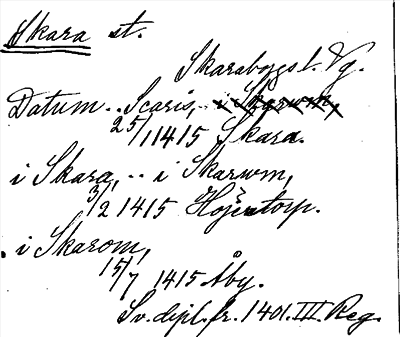 Skara st.
Skaraborgs l. Vg.
Datum .. Scaris, i Skarwm,
25/1 1415 Skara.
i Skara, .. i Skarwm,
3/2 1415 Hojentorp.
i Skarom,
15/7 1415 Åby.
Sv. dipl. fr. 1401. III. Reg.